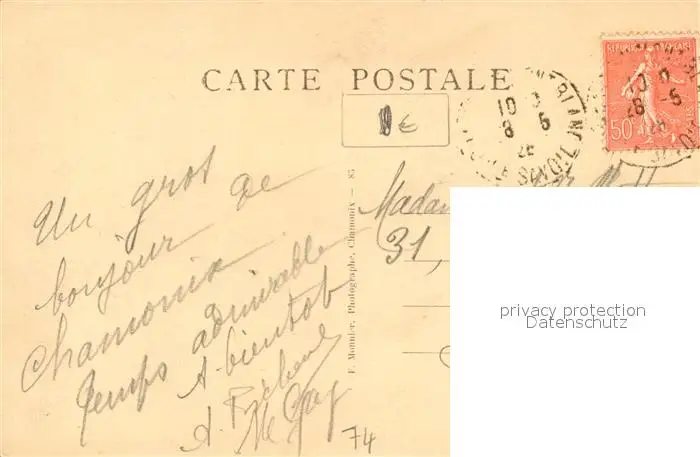 CARTE POSTALE
RÉPUBLIQUE FRANÇAISE
50c
10
8 5
26
10
8 -5
€
Un gros
bonjour de
Chamonix
Temps admirable
A bientôt
A.
Me Gay
74
F. Monnier, Photographe, Chamonix - 85
Madam
31,
privacy protection
Datenschutz